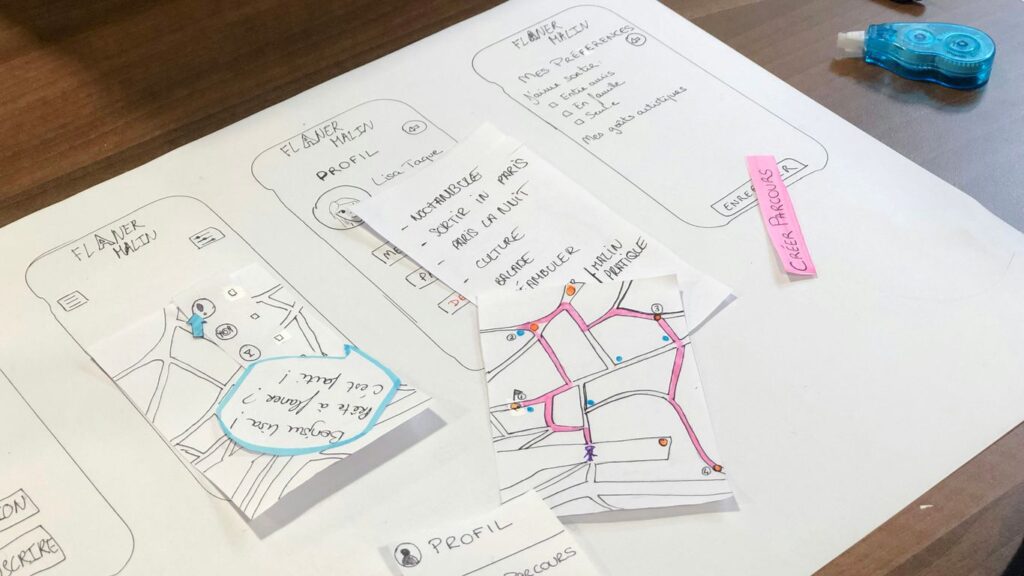 FLÂNER
MALIN
Mes Préférences
J'aime sortir :
Entre amis
En famille
Seule
Mes goûts artistiques
CRÉER PARCOURS
FLÂNER
MALIN
PROFIL
Lisa Taque
- NOCTAMBULE
- SORTIR IN PARIS
- PARIS LA NUIT
- CULTURE
BALADE
AMBULER
MALIN
PRATIQUE
FLÂNER
MALIN
Bonjour Lisa !
Prête à flâner ?
C'est parti !
2
3
4
PROFIL
PARCOURS